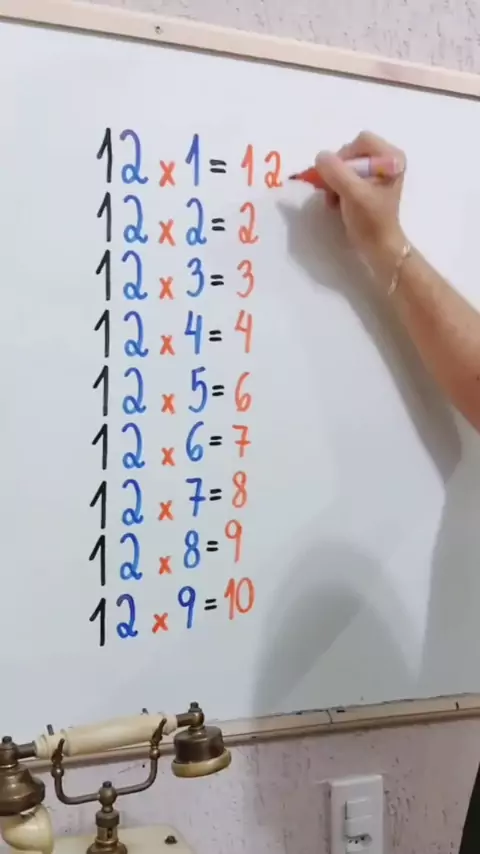 12 x 1 = 12
12 x 2 = 2
12 x 3 = 3
12 x 4 = 4
12 x 5 = 6
12 x 6 = 7
12 x 7 = 8
12 x 8 = 9
12 x 9 = 10